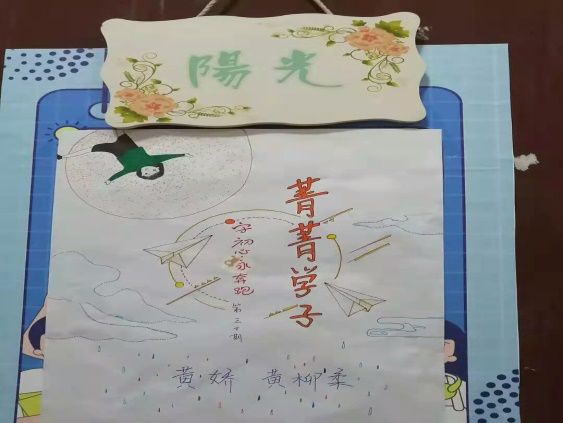 陽光
菁菁学子
字初心永奔跑
第三十期
黄娇 黄柳柔